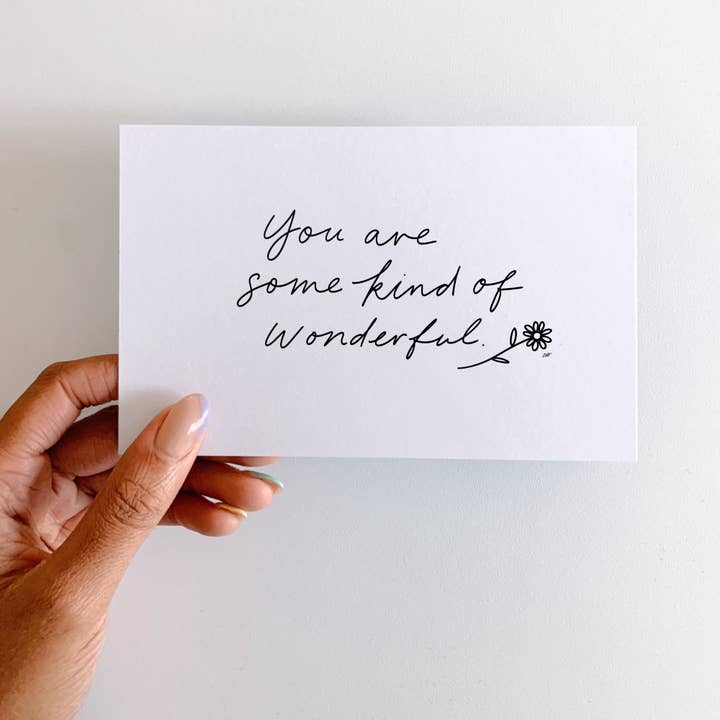 You are
some kind of
wonderful.